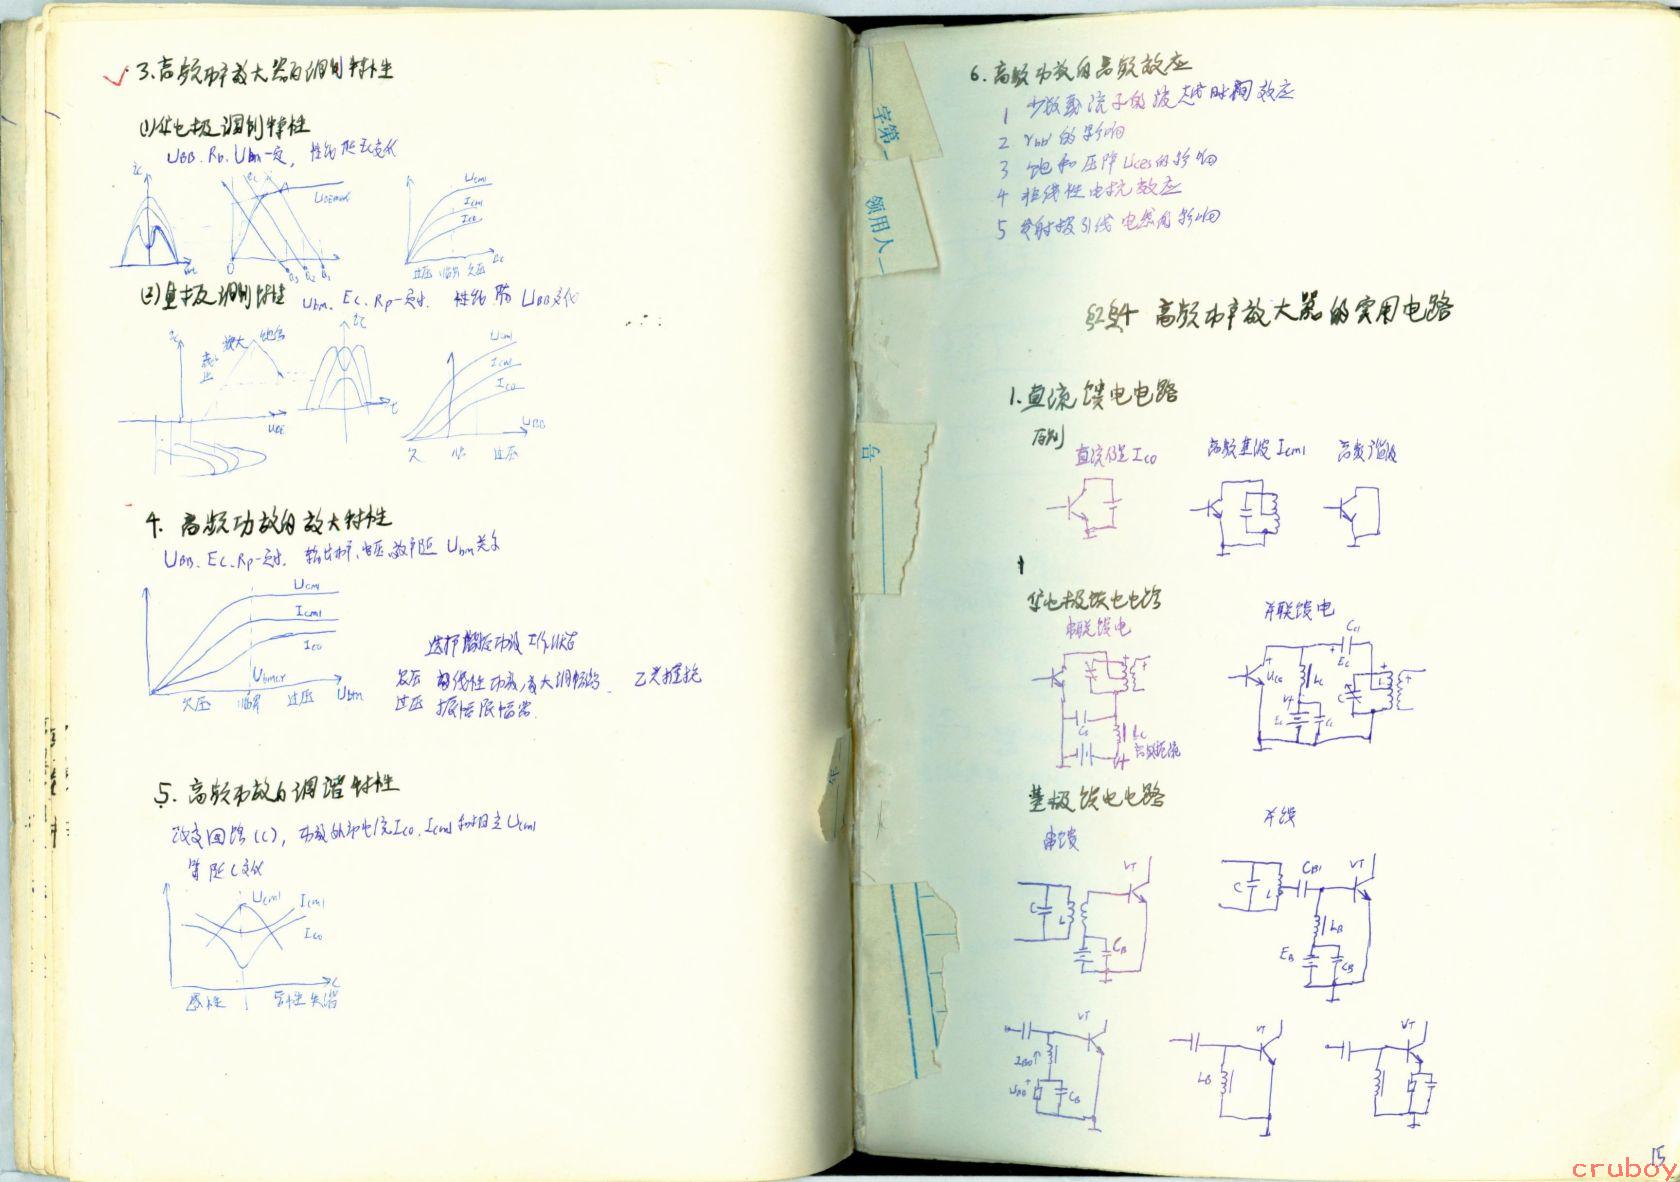 3.高频功率放大器的调制特性
(1)集电极调制特性
UBB、Rp、Ubm一定，性能随Ec变化
ic
UCEmax
ωt
0
Ucm1
Icm1
Ic0
Ec
过压 临界 欠压
(2)基极调制特性 Ubm、Ec、Rp一定时 性能随UBB变化
ic
截止
放大
饱和
UBE
ic
t
Ucm1
Icm1
Ic0
UBB
欠 临 过压
4. 高频功放的放大特性
UBB、Ec、Rp一定时，输出功率、电压、效率随Ubm关系
Ucm1
Icm1
Ic0
Ubmcr
Ubm
欠压 临界 过压
选择 功放工作状态
欠压 线性功放,放大调幅
过压 振幅限幅器
5. 高频功放的调谐特性
改变回路(C)，功放外部电流Ic0、Icm1和相应Ucm1
等随C变化
Ucm1
Icm1
Ic0
C
感性 容性失谐
6. 高频功放的高频效应
1 少数载流子的渡越时间效应
2 rbb'的影响
3 饱和压降Uces的影响
4 非线性电抗效应
5 发射极引线电感的影响
高频功率放大器的实用电路
1.直流馈电电路
原则
直流 Ic0
高频基波Icm1
高频谐波
集电极馈电电路
串联馈电
并联馈电
Cc
Lc
高频扼流
Cc1
Ec
Uce
Lc
Ec
Cc
C
L
基极馈电电路
串馈
并馈
C
L
VT
CB
C
L
CB1
VT
LB
EB
CB
VT
IB0
UBB
CB
VT
LB
VT
15
字第
领用人
台
cruboy